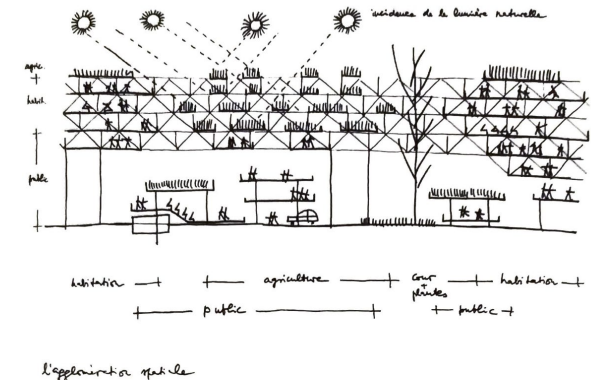 incidence de la lumière naturelle
agric.
habit.
public
habitation
agriculture
cour
+
plantes
habitation
public
public
l'agglomération spatiale